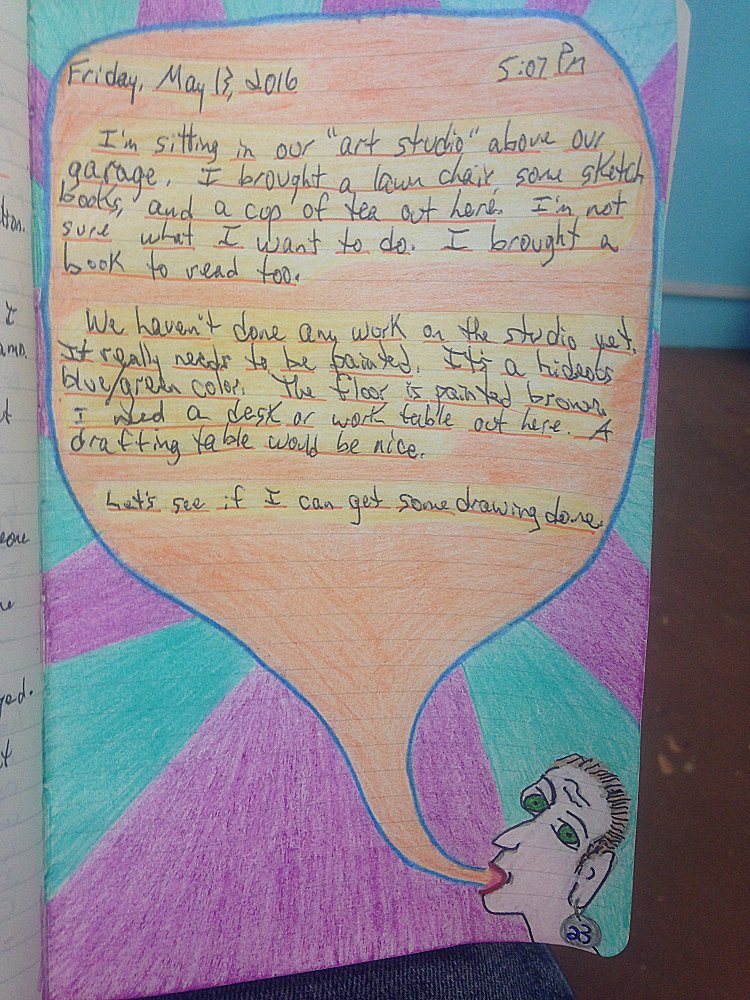 Friday, May 13, 2016 5:07 PM
I'm sitting in our "art studio" above our
garage. I brought a lawn chair, some sketch
books, and a cup of tea out here. I'm not
sure what I want to do. I brought a
book to read too.
We haven't done any work on the studio yet.
It really needs to be painted. It's a hideobs
blue/green color. The floor is painted brown.
I need a desk or work table out here. A
drafting table would be nice.
Let's see if I can get some drawing done.
23